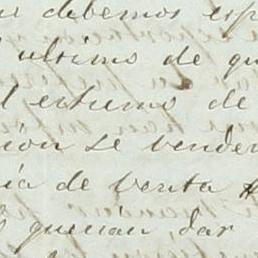 debemos esp
ultimo de qu
l estremo de
ion se vender
ia de venta
querian dar